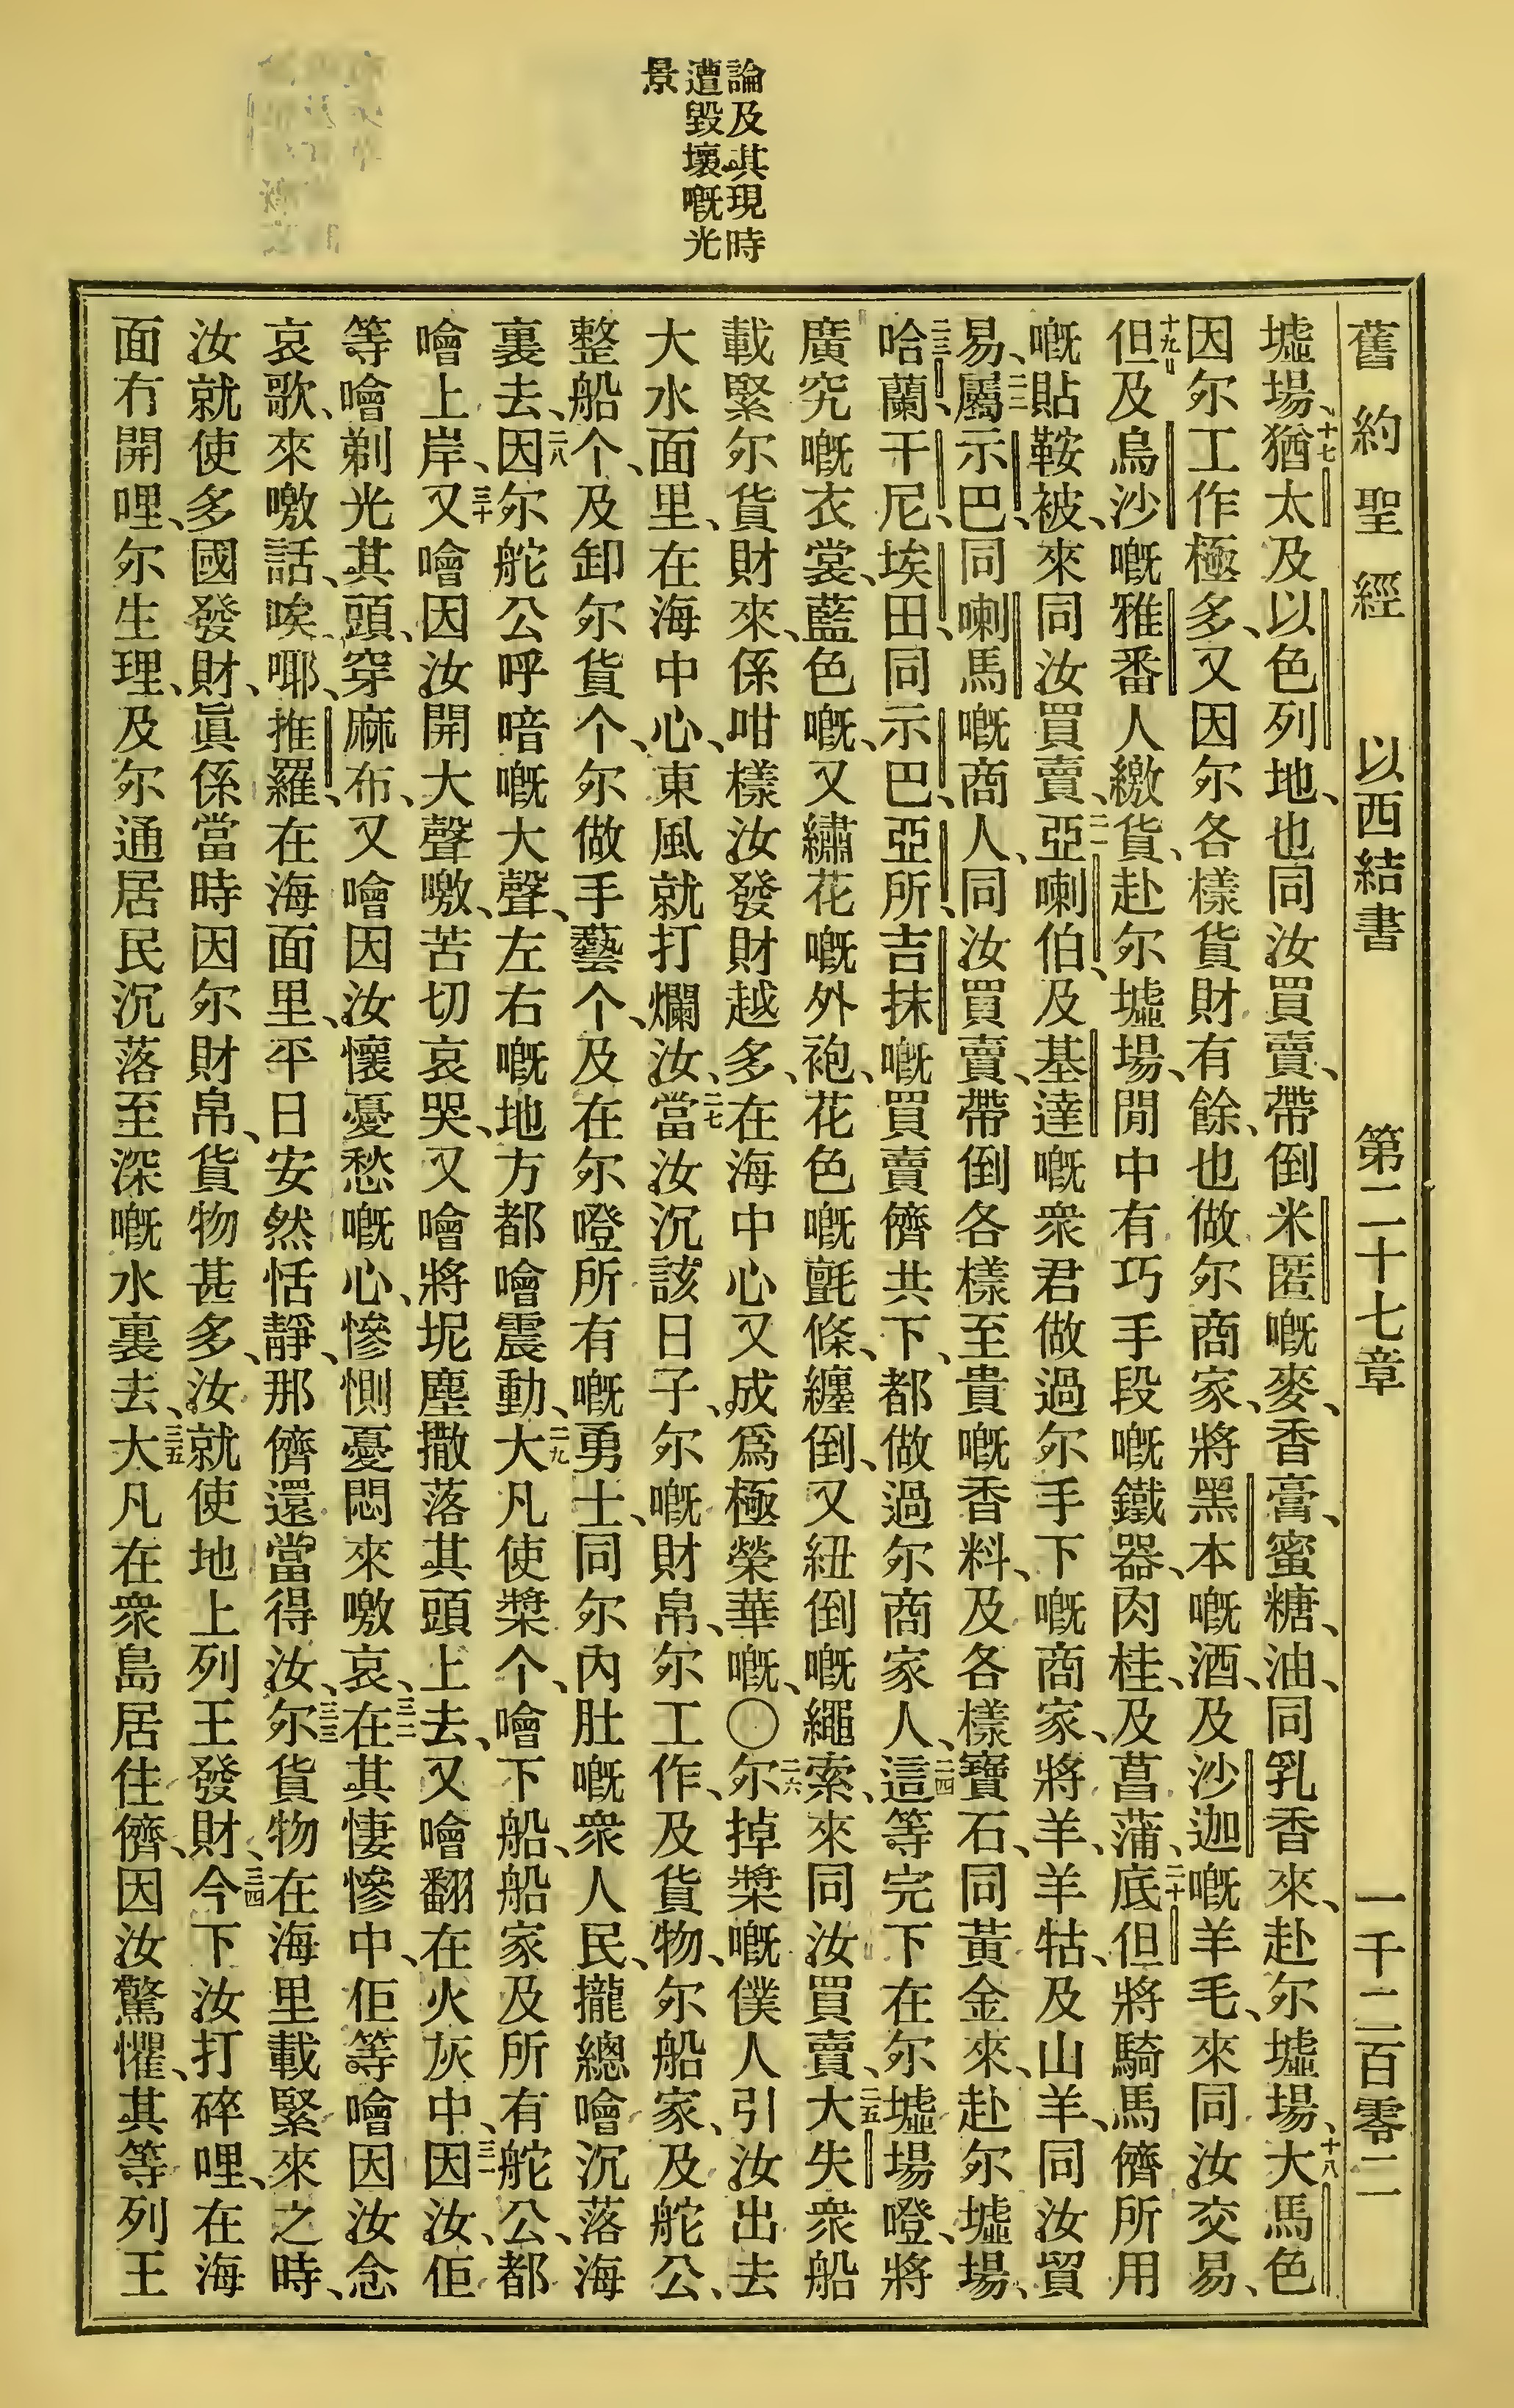 論及其現時
遭毀壞嘅光
景
舊約聖經　以西結書　第二十七章　一千二百零二
墟場、十七猶太及以色列地、也同汝買賣、帶倒米匿嘅麥、香膏、蜜糖、油、同乳香來、赴尔墟場、十八大馬色
因尔工作極多、又因尔各樣貨財有餘、也做尔商家、將黑本嘅酒、及沙迦嘅羊毛、來同汝交易、
十九但及烏沙嘅雅番人繳貨、赴尔墟場、閒中有巧手段嘅鐵器、肉桂、及菖蒲、二十底但將騎馬儕所用
嘅貼鞍被、來同汝買賣、二一亞喇伯、及基達嘅衆君做過尔手下嘅商家、將羊、羊牯、及山羊、同汝貿
易、二二屬示巴、同喇馬嘅商人、同汝買賣、帶倒各樣至貴嘅香料、及各樣寶石、同黃金來、赴尔墟場、
二三哈蘭、干尼、埃田、同示巴、亞所、吉抹嘅買賣儕共下、都做過尔商家人、二四這等完下在尔墟場噔、將
廣究嘅衣裳、藍色嘅、又繡花嘅外袍、花色嘅氈條、纏倒、又紐倒嘅繩索、來同汝買賣、二五大失衆船
載緊尔貨財來、係咁樣汝發財越多、在海中心又成爲極榮華嘅、〇二六尔掉槳嘅僕人引汝出去
大水面里、在海中心、東風就打爛汝、二七當汝沉該日子、尔嘅財帛、尔工作、及貨物、尔船家、及舵公、
整船个、及卸尔貨个、尔做手藝个、及在尔噔所有嘅勇士、同尔內肚嘅衆人民、攏總噲沉落海
裏去、二八因尔舵公呼喑嘅大聲、左右嘅地方都噲震動、二九大凡使槳个、噲下船、船家及所有舵公、都
噲上岸、三十又噲因汝開大聲噭、苦切哀哭、又噲將坭塵撒落其頭上去、又噲翻在火灰中、三一因汝、佢
等噲剃光其頭、穿麻布、又噲因汝懷憂愁嘅心、慘惻憂悶來噭哀、三二在其悽慘中、佢等噲因汝念
哀歌、來噭話、唉、㖿、推羅、在海面里、平日安然恬靜、那儕還當得汝、三三尔貨物在海里載緊來之時、
汝就使多國發財、眞係當時因尔財帛、貨物甚多、汝就使地上列王發財、三四今下汝打碎哩、在海
面冇開哩、尔生理、及尔通居民沉落至深嘅水裏去、三五大凡在衆島居住儕、因汝驚懼、其等列王